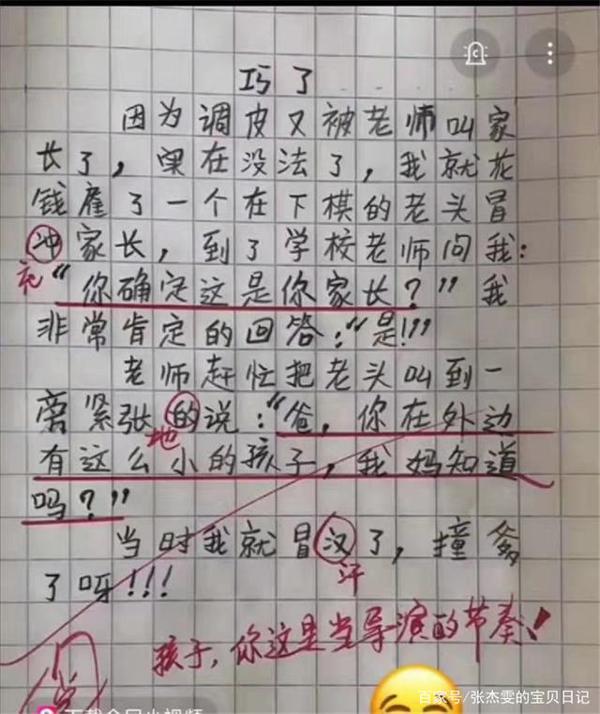 巧了
因为调皮又被老师叫家
长了，实在没法了，我就花
钱雇了一个在下棋的老头冒
冲家长，到了学校老师问我：
充
“你确定这是你家长？”我
非常肯定的回答：“是!!!
老师赶忙把老头叫到一
旁紧张的说：“爸，你在外边
地
有这么小的孩子，我妈知道
吗？”
当时我就冒汉了，撞爷
汗
了呀!!!
孩子，你这是当导演的节奏！
百家号/张杰雯的宝贝日记